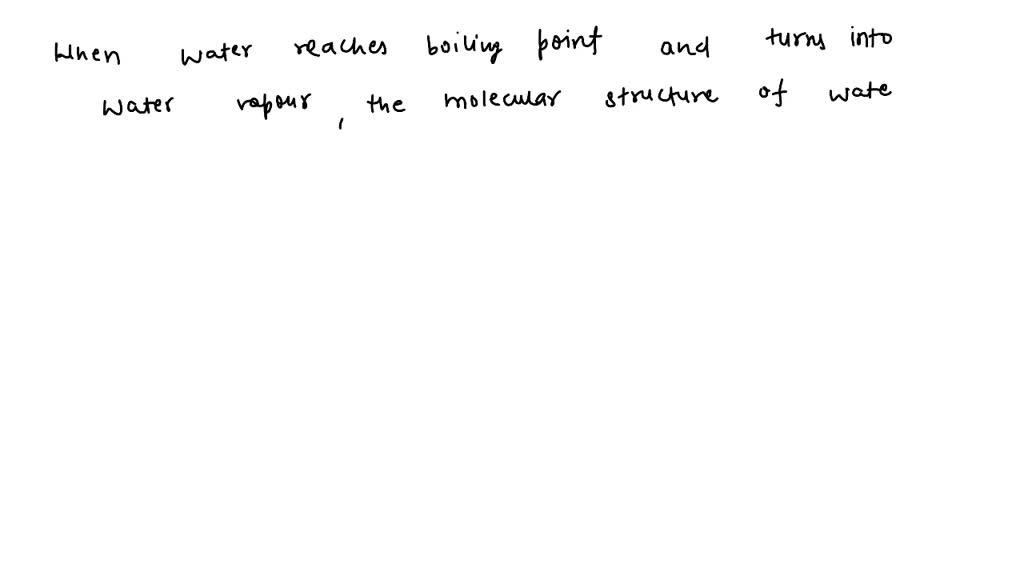 When water reaches boiling point and turns into
water vapour, the molecular structure of wate